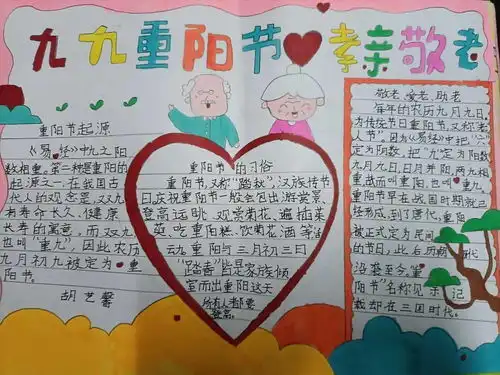 九九重阳节 孝亲敬老
重阳节起源
《易经》中九之阳
数相重。第二种是重阳的
起源之一,在我国古
代人的观念里,双九
有寿命长久、健康
长寿的寓意,而双九
也叫“重九”,因此农历
九月初九被定为重
阳节。
胡艺馨
重阳节的习俗
重阳节,又称“踏秋”,汉族传节
日庆祝重阳节一般会包出游赏景、
登高远眺、观赏菊花、遍插茱
萸、吃重阳糕、饮菊花酒等活
云力重阳与三月初三日
“踏青”皆是家族倾
室而出重阳这天
所有人都要
登高。
敬老、爱老、助老
每年的农历九月九日,
为传统节日重阳节,又称“老
人节”。因为《易经》中把“六”
定为阴数,把“九”定为阳数
九月九日,日月并阳,两九相
重,故而叫重阳,也叫重九。
重阳节早在战国时期就已
经形成,到了唐代,重阳
被正式定为民间
的节日,此后历朝代
沿袭至今。重
阳节”名称见于记
载却在三国时代。